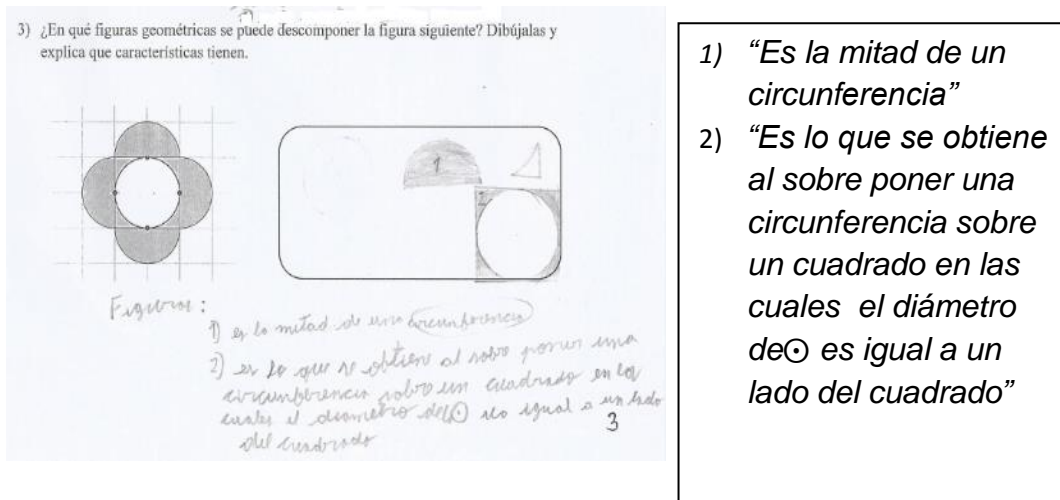 3) ¿En qué figuras geométricas se puede descomponer la figura siguiente? Dibújalas y
explica que características tienen.
1
2
Figuras:
1) es la mitad de una circunferencia
2) es lo que se obtiene al sobre poner una
circunferencia sobre un cuadrado en las
cuales el diametro del ⊙ es igual a un lado
del cuadrado
3
1) “Es la mitad de un
circunferencia”
2) “Es lo que se obtiene
al sobre poner una
circunferencia sobre
un cuadrado en las
cuales el diámetro
de⊙ es igual a un
lado del cuadrado”